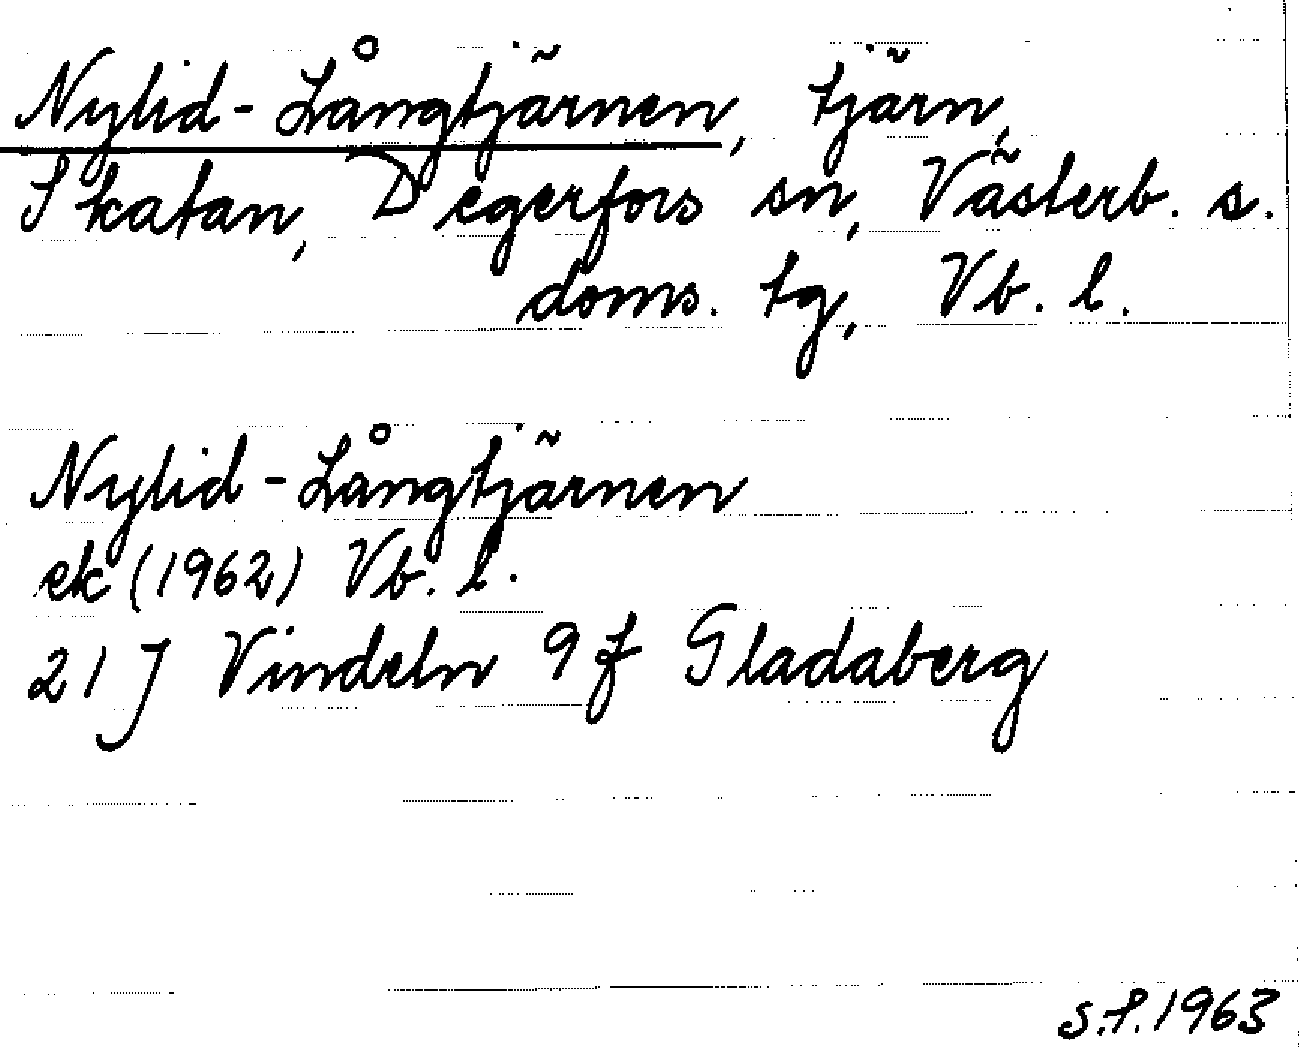 Nylid-Långtjärnen, tjärn,
Skatan, Degerfors sn, Västerb. s.
doms. tg, Vb. l.
Nylid-Långtjärnen
ek (1962) Vb. l.
21 J Vindeln 9 f Gladaberg
S.f. 1963